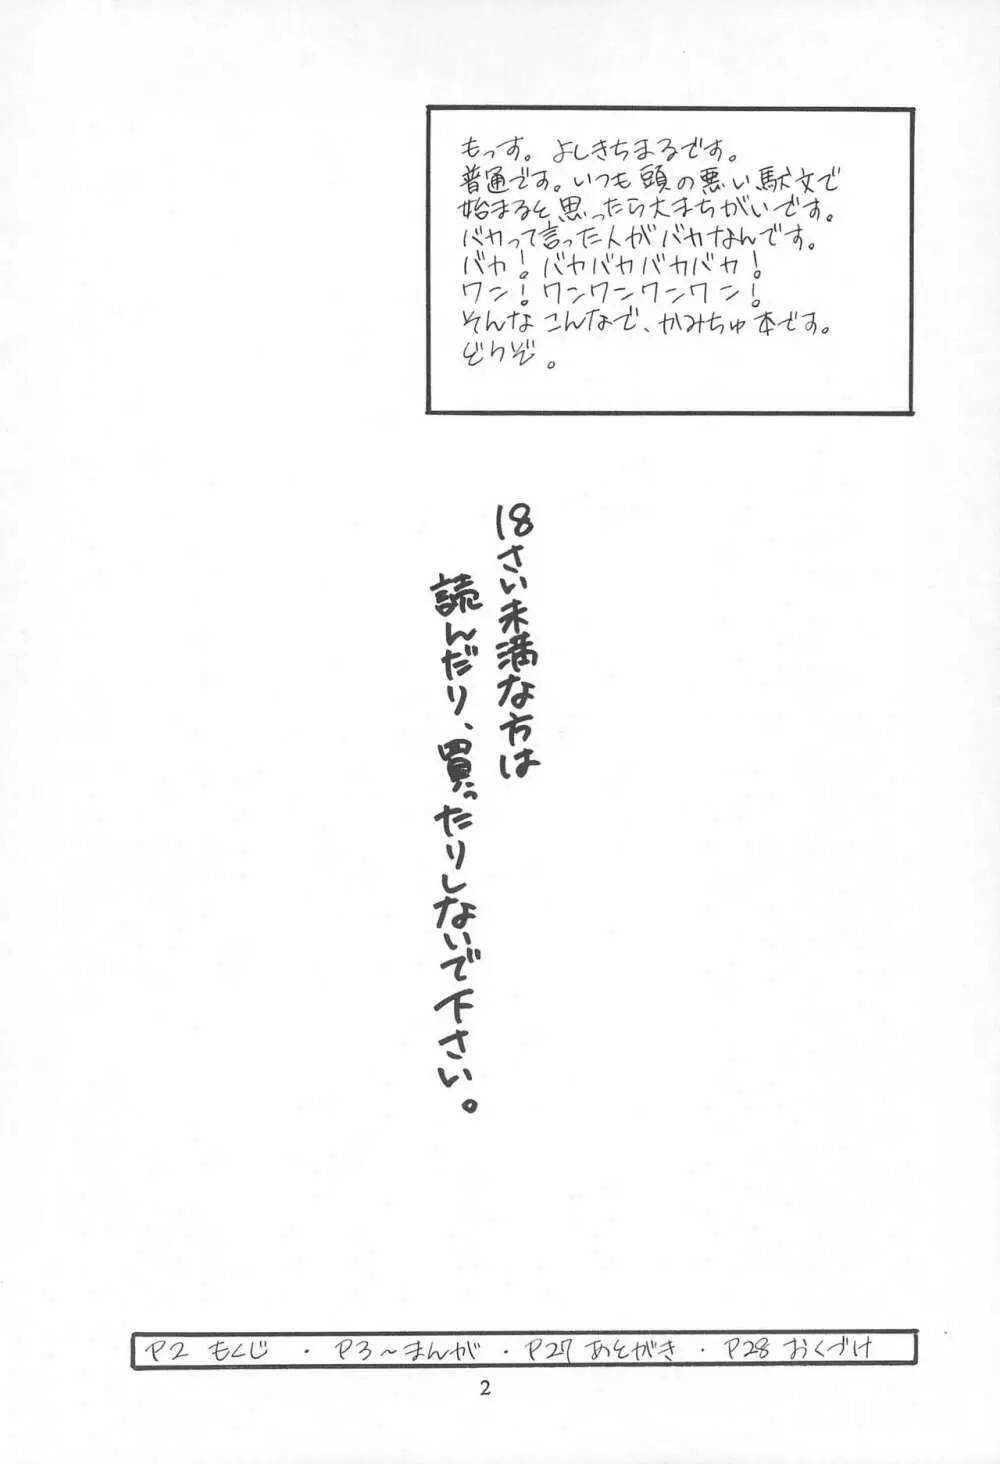 もっす。よしきちまるです。
普通です。いつも頭の悪い駄文で
始まると思ったら大まちがいです。
バカって言った人がバカなんです。
バカ！バカバカバカバカ！
ワン！ワンワンワンワン！
そんなこんなで、かみちゅ本です。
どうぞ。
18さい未満な方は
読んだり、買ったりしないで下さい。
P2 もくじ ・ P3～まんが ・ P27 あとがき ・ P28 おくづけ
2